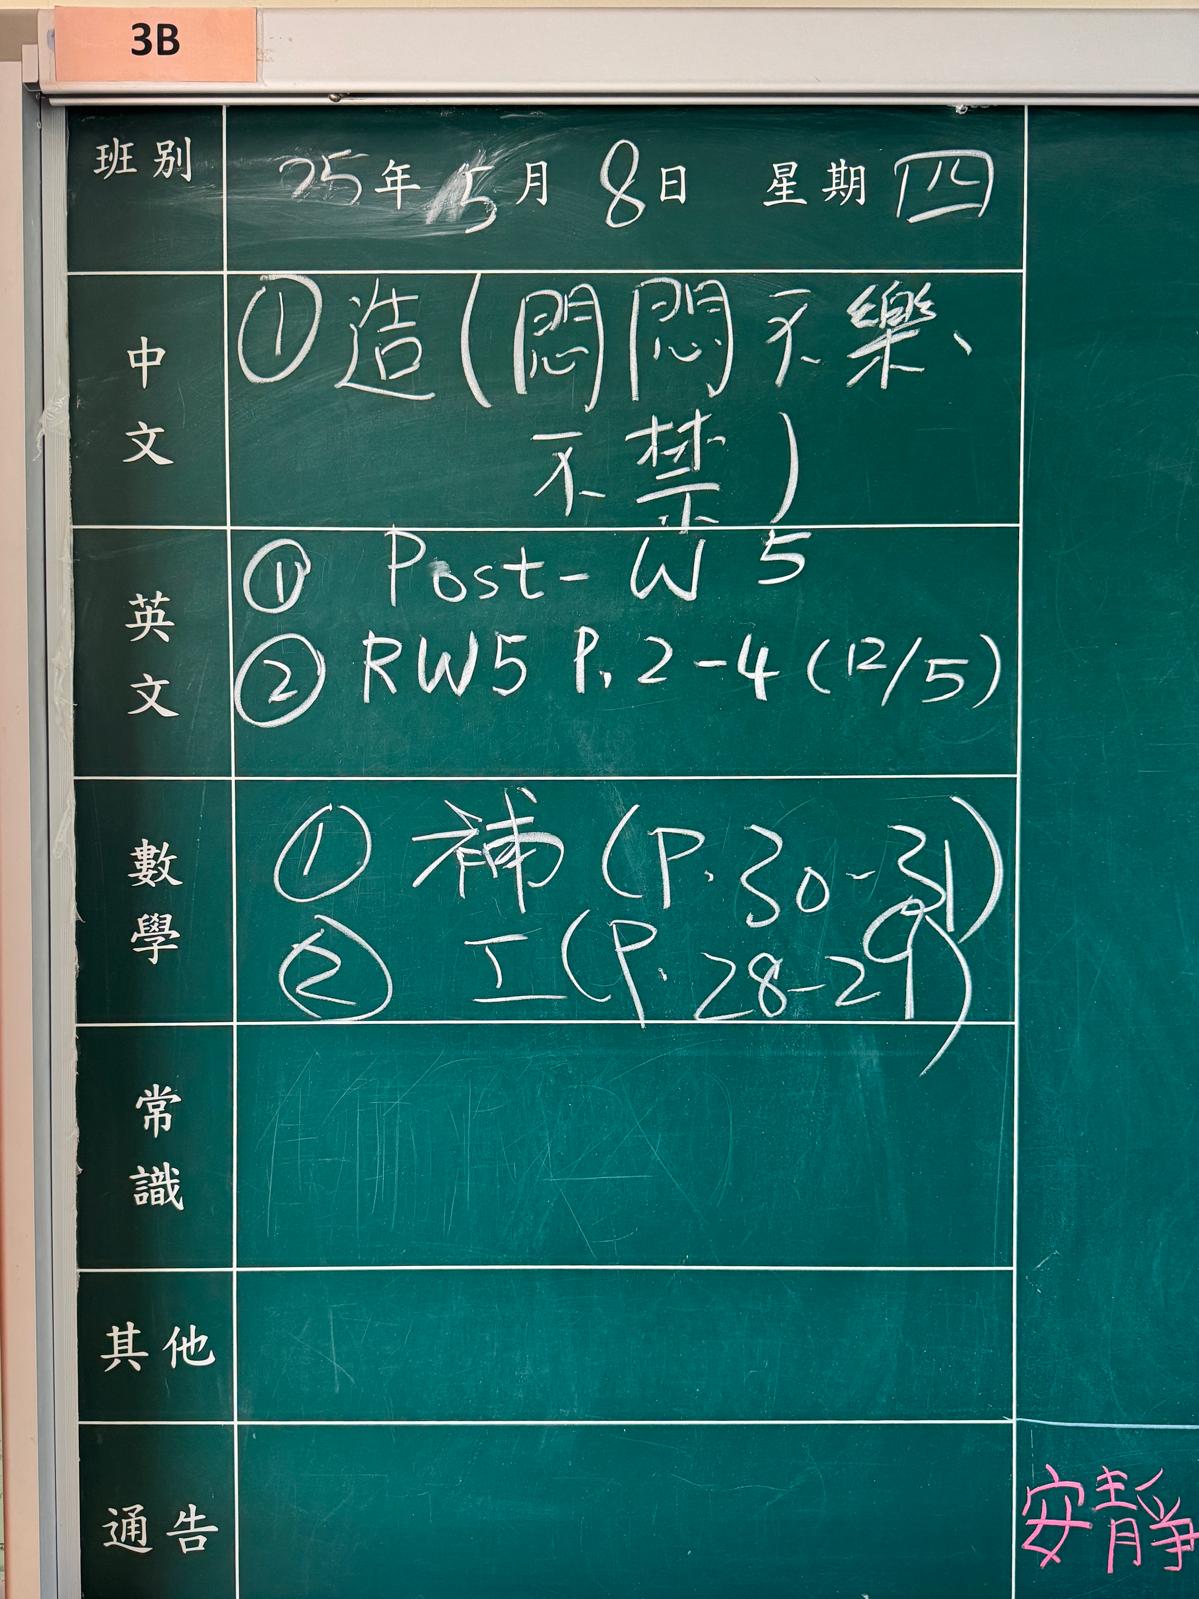 3B
班別 25年5月8日 星期四
中文 ①造(悶悶不樂、
不禁)
英文 ① Post-W 5
② RW5 P.2-4 (12/5)
數學 ① 補(P.30-31)
② 工(P.28-29)
常識
其他
通告
安靜